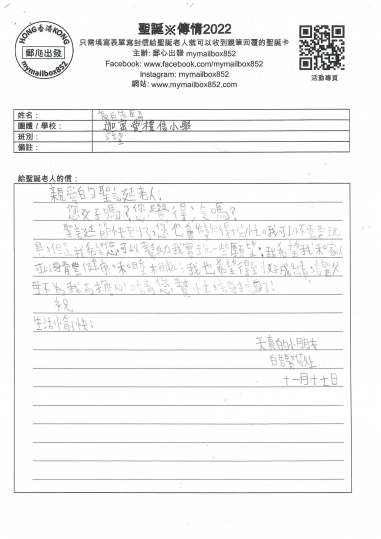 HONG香港KONG
郵心出發
mymailbox852
聖誕※傳情2022
只需填寫表單寫封信給聖誕老人就可以收到親筆回覆的聖誕卡
主辦: 郵心出發 mymailbox852
Facebook: www.facebook.com/mymailbox852
Instagram: mymailbox852
網站: www.mymailbox852.com
活動專頁
姓名:
團體 / 學校: 迦密愛禮信小學
班別:
備註:
給聖誕老人的信:
親愛的聖誕老人:
您好嗎?您覺得冷嗎?
聖誕節快到了,您也會變得忙
我希望您可以幫助我實現一些願望:我希望我和家人
可以身體健康、和睦相處;我也希望得到好成績,讓父
母不為我而擔心!請您幫忙,謝謝!
祝
生活愉快!
天真的小朋友
十一月十七日